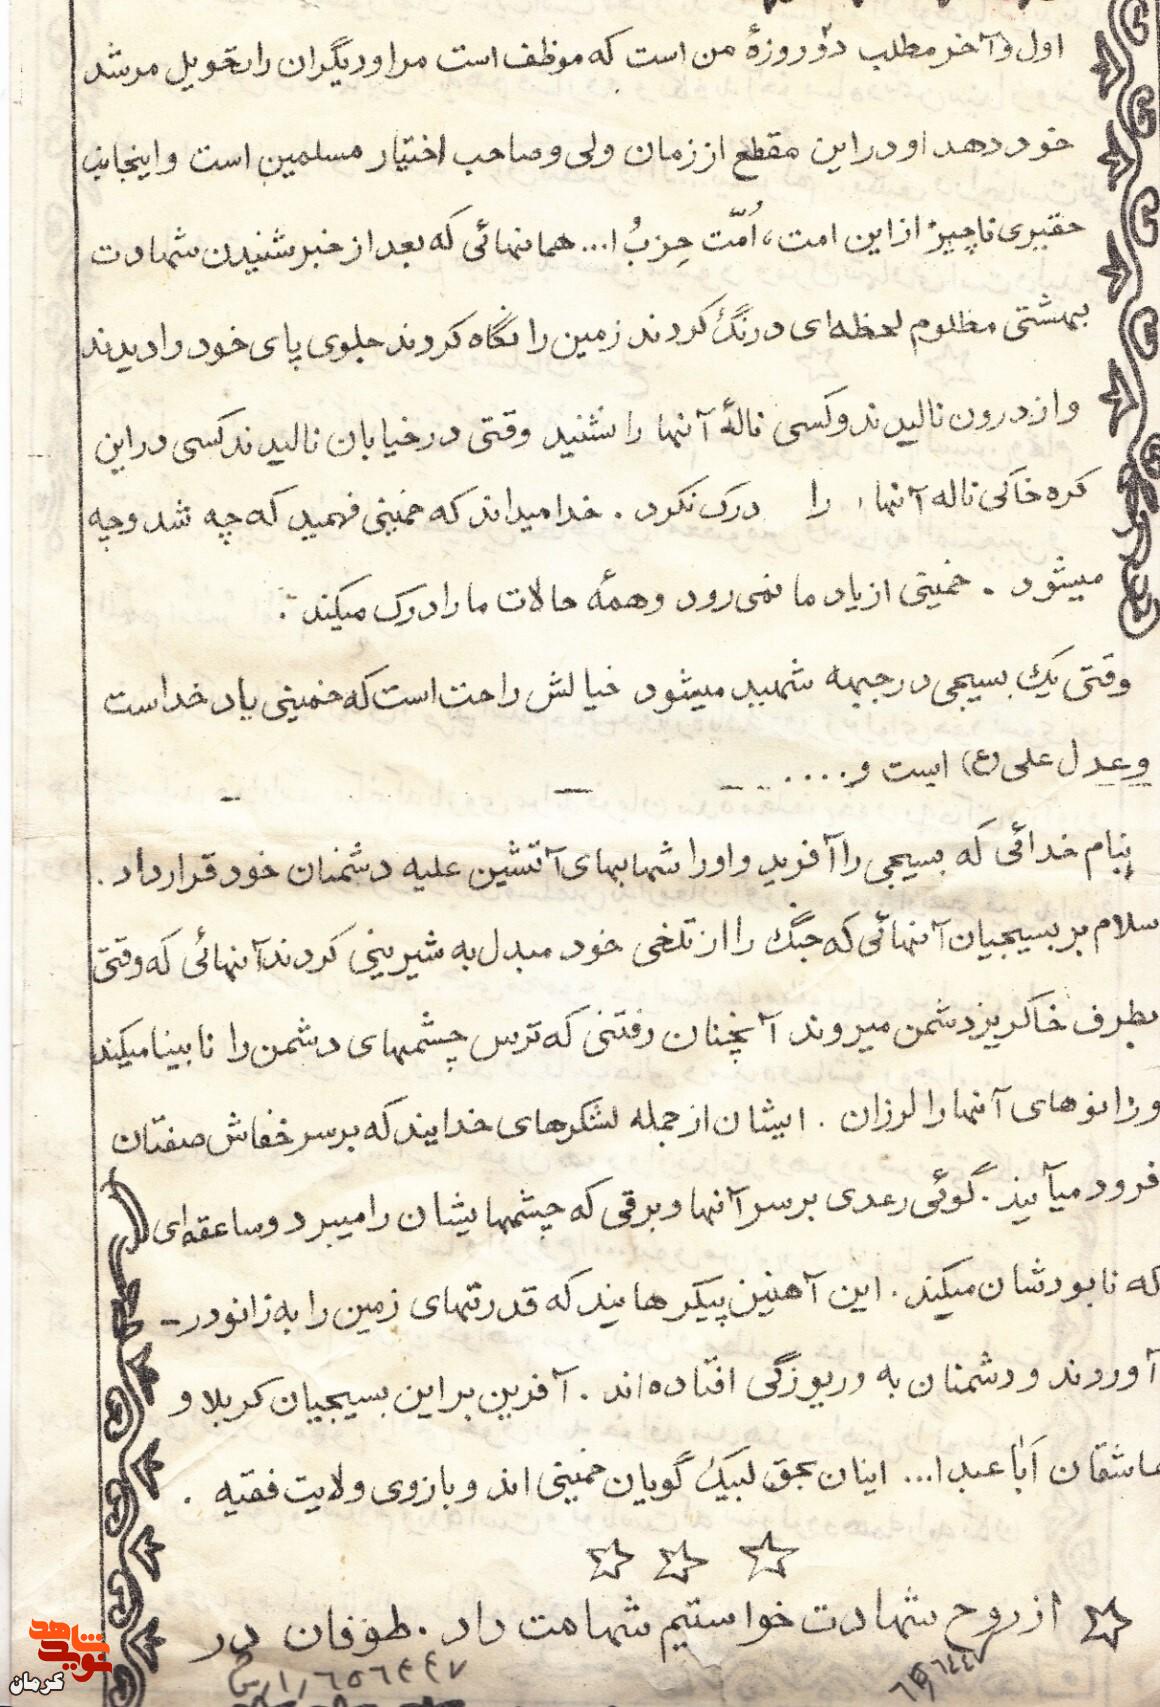 اول و آخر مطلب دو روزهٔ من است که موظف است مرا و دیگران را تحویل مرشد
خود دهد او در این مقطع از زمان ولی و صاحب اختیار مسلمین است و اینجانب
حقیری ناچیز از این امت، اُمّت حِزبُ ا... همانهائی که بعد از خبر شنیدن شهادت
بهشتی مظلوم لحظه‌ای درنگ کردند زمین را نگاه کردند جلوی پای خود را دیدند
و از درون نالیدند و کسی نالهٔ آنها را نشنید وقتی در خیابان نالیدند کسی در این
کره خاکی ناله آنها را درک نکرد . خدا میداند که خمینی فهمید که چه شد و چه
میشود . خمینی از یاد ما نمی رود و همهٔ حالات ما را درک میکند :
وقتی یک بسیجی در جبهه شهید میشود خیالش راحت است که خمینی یاد خداست
و عدل علی (ع) است و ....
بنام خدائی که بسیجی را آفرید و او را شهابهای آتشین علیه دشمنان خود قرار داد .
سلام بر بسیجیان آنهائی که جنگ را از تلخی خود مبدل به شیرینی کردند آنهائی که وقتی
بطرف خاکریز دشمن میروند آنچنان رفتنی که ترس چشمهای دشمن را نابینا میکند
و زانوهای آنها را لرزان . ایشان از جمله لشکرهای خدایند که بر سر خفاش صفتان
فرود میآیند . گوئی رعدی بر سر آنها و برقی که چشمهایشان را میبرد و ساعقه‌ای
که نابودشان میکند . این آهنین پیکرهایند که قدرتهای زمین را به زانو در -
آوروند و دشمنان به دریوزگی افتاده‌اند . آفرین بر این بسیجیان کربلا و
عاشقان اَبا عبدا... اینان بحق لبیک گویان خمینی اند و بازوی ولایت فقیه .
از روح شهادت خواستیم شهامت داد . طوفان در
نوید شاهد
کرمان